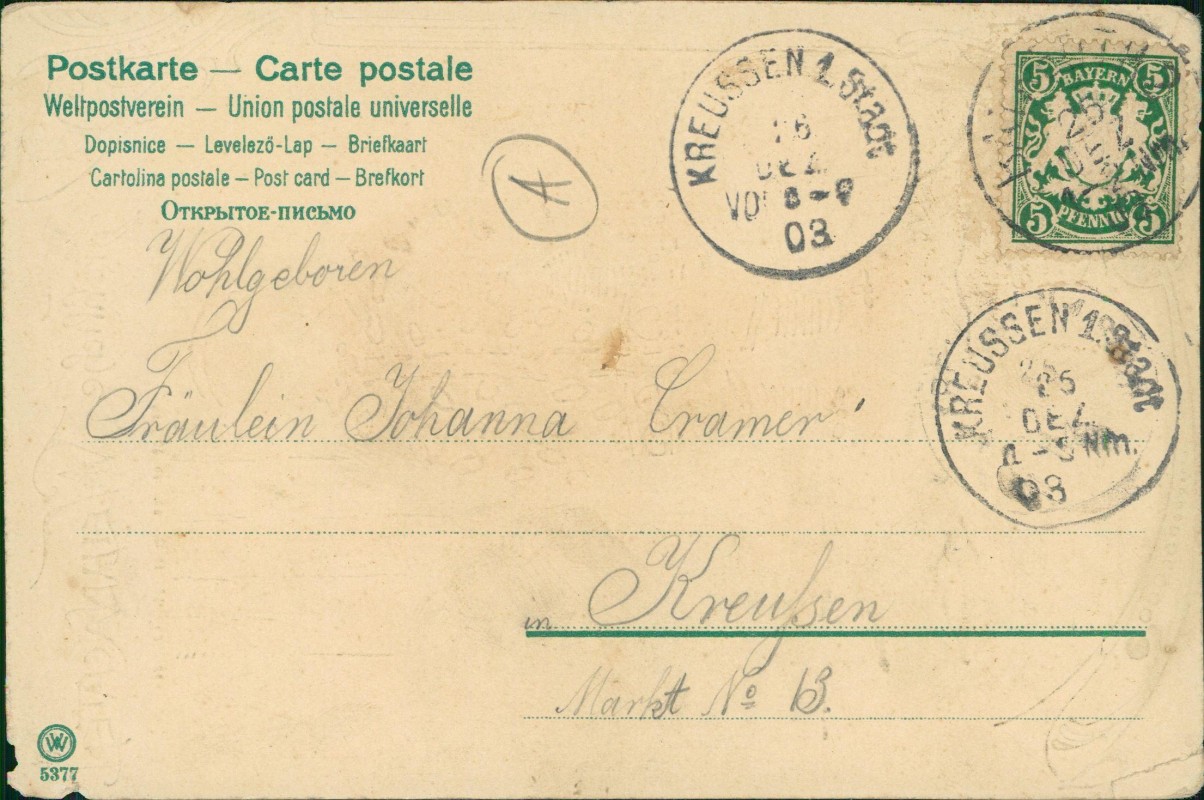 Postkarte — Carte postale
Weltpostverein — Union postale universelle
Dopisnice — Levelező-Lap — Briefkaart
Cartolina postale — Post card — Brefkort
Открытое-письмо
A
KREUSSEN 1. Stadt
26
DEZ.
VOR 8-9
03
5 BAYERN 5
5 PFENNIG 5
Wohlgeboren
Fräulein Johanna Cramer
KREUSSEN 1. Stadt
DEZ.
Nm.
03
in Kreußen
Markt No 13.
W
5377